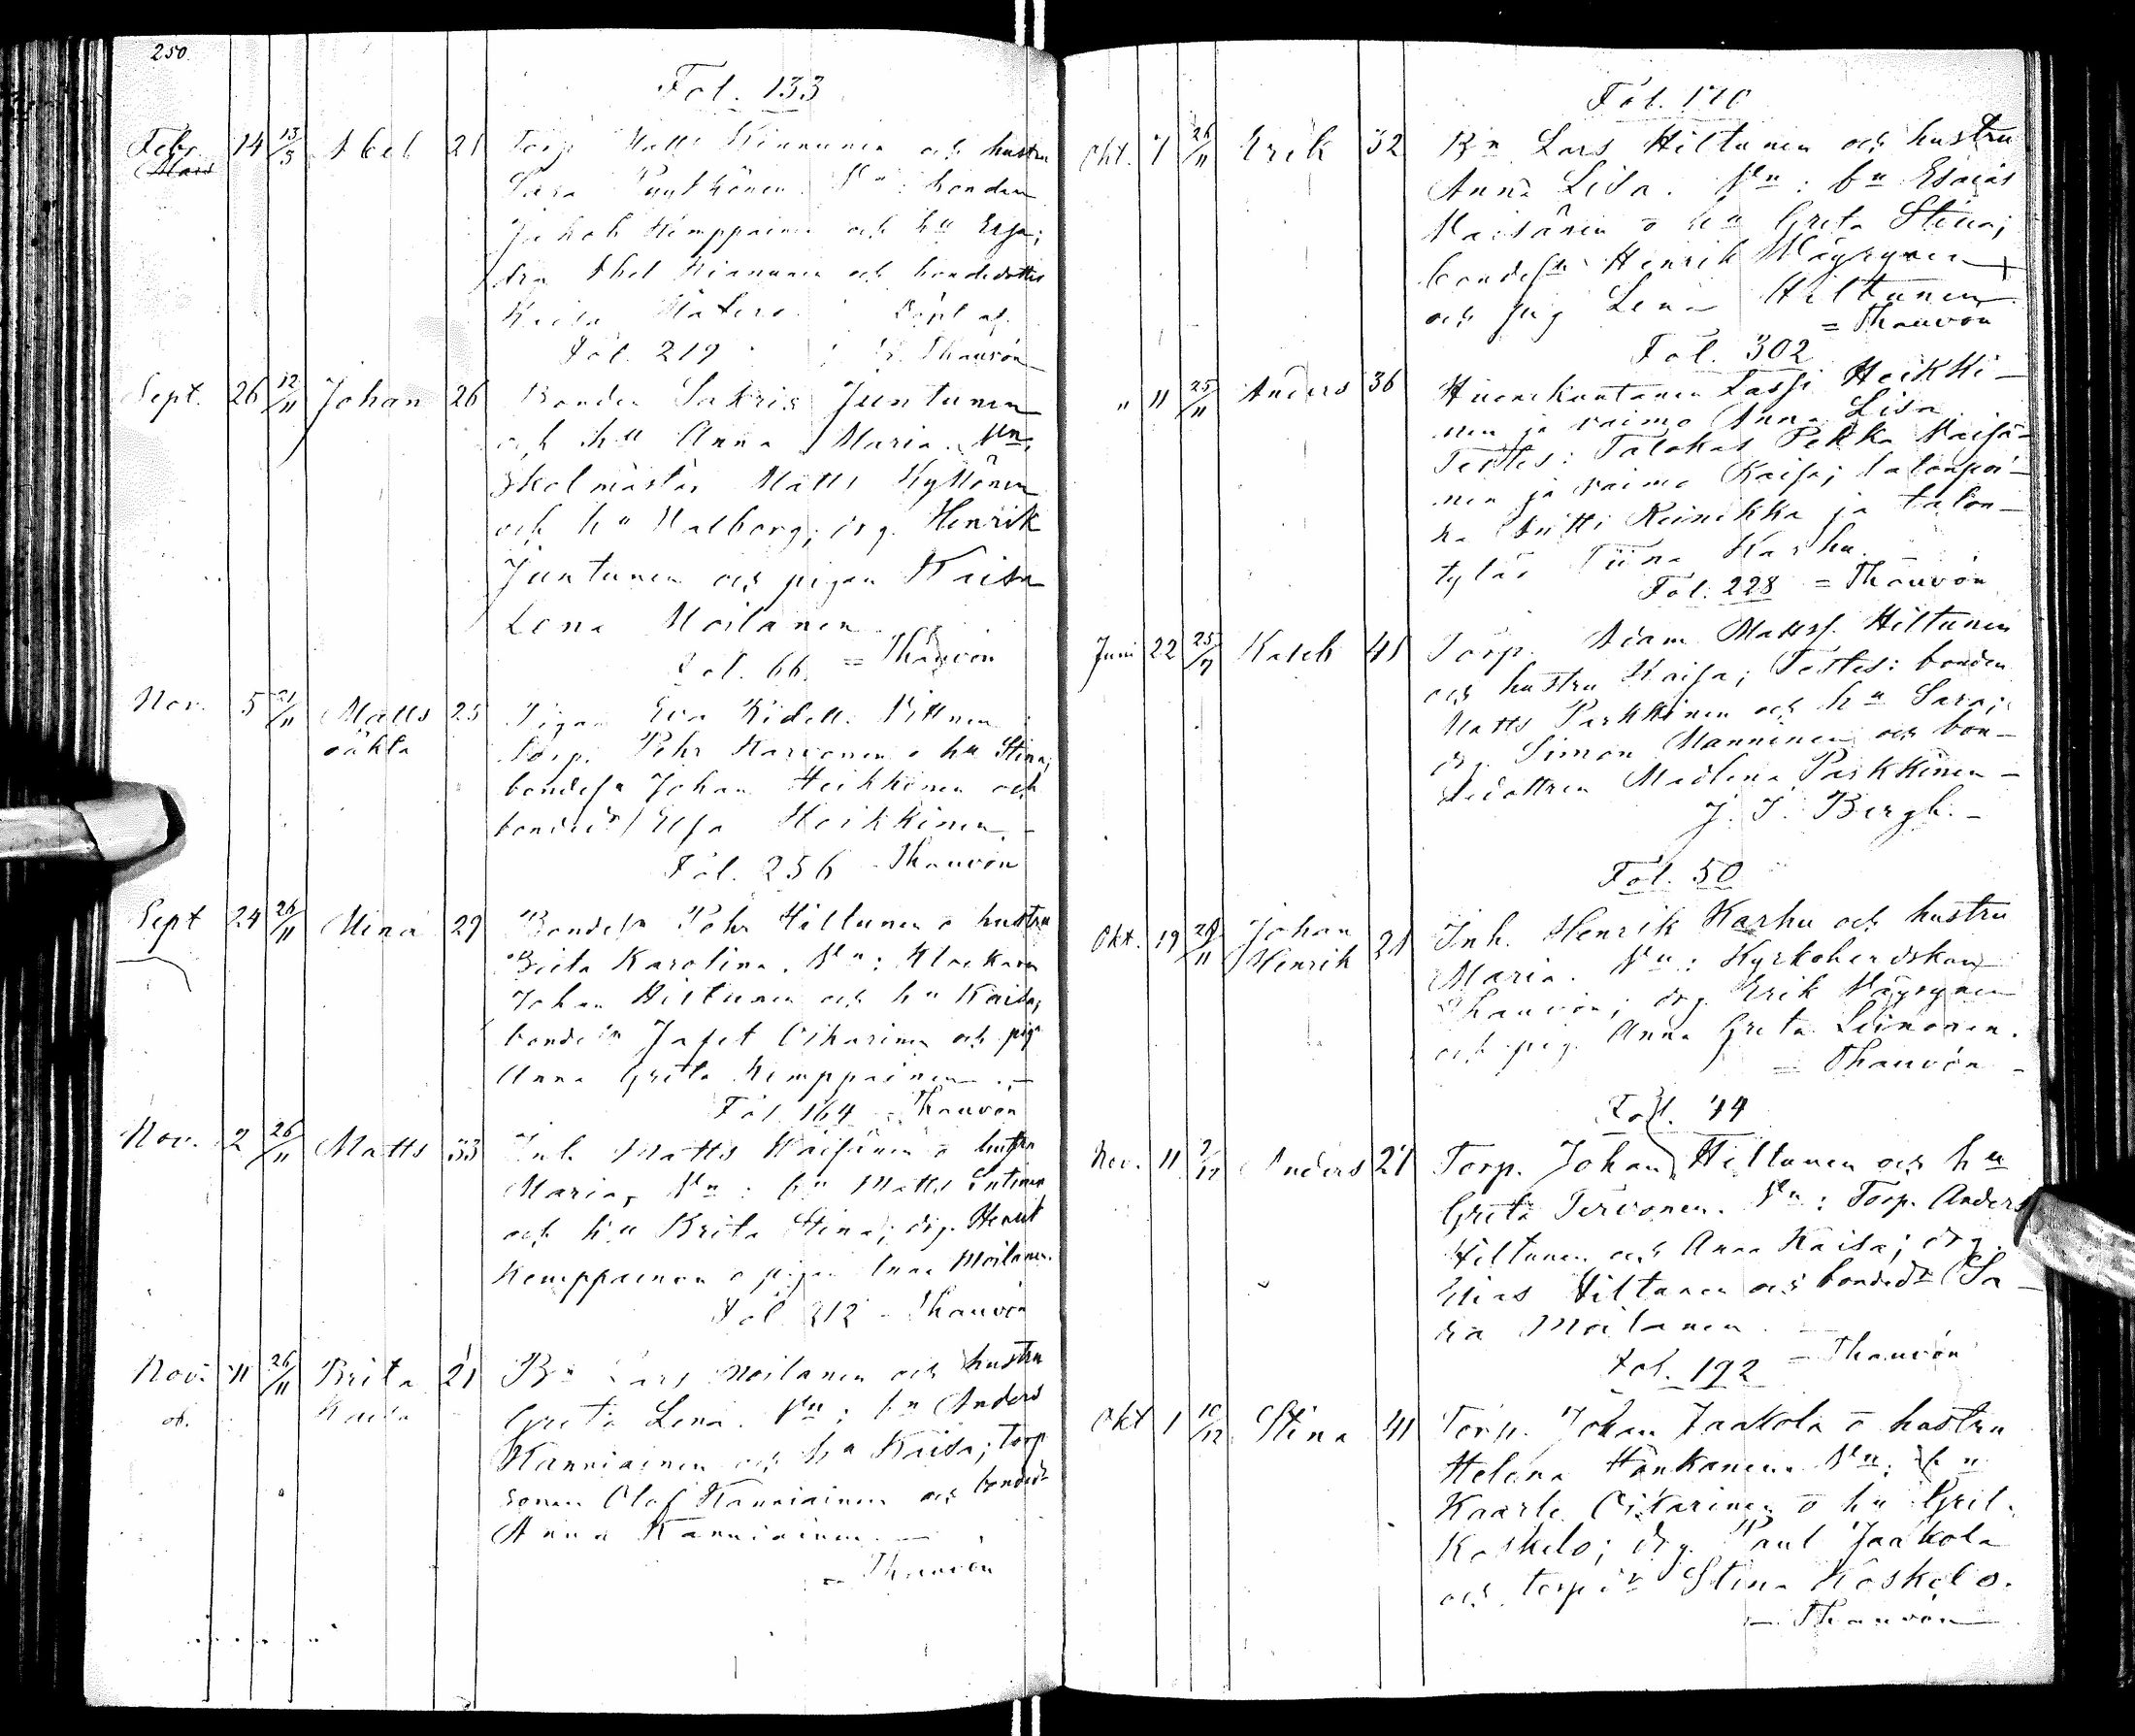 250.
Fol. 133
Feby 14 13/3 Abel 21 Torp Matts Kinnunen och hustru
Mars
Sara V:n: bonden
Jakob Kemppainen och h:u
Abel Kinnunen och bondedotter
Kaisa Döpt af
Fol. 219 Thauvón
Sept. 26 12/11 Johan 26 Bonden Sakris Juntunen
och h:u Anna Maria. V:n:
Skolmästar Matts Kyllönen
och h:u Walborg; drg. Henrik
Juntunen och pigan Kaisa
Lena Moilanen
Fol. 66. = Thauvón
Nov. 5 21/11 Matts 25 Pigan Eva
oäkta Torp. Pehr Karvonen o h:u Stina;
bondes:n Johan Heikkinen och
bonded:r Elsa Heikkinen. -
Fol. 256 - Thauvón
Sept 24 26/11 Mina 29 Bondes:n Pehr Hiltunen o hustru
Brita Karolina. V:n: Klockaren
Johan Hiltunen och h:u Kaisa;
bondes:n Jafet Oikarinen och pig
Anna Greta Kemppainen. -
Fol. 164 - Thauvón
Nov. 2 26/11 Matts 33 Inh. Matts Väisänen o hustru
Maria, V:n: b:n Matts
och h:u Brita Stina; drg. Henrik
Kemppainen o pigan Anna Moilanen.
Fol 212 - Thauvón
Nov. 11 26/11 Brita 21 B:n Lars Moilanen och hustru
ob. Kaisa Greta Lena. V:n: b:n Anders
Kanniainen och h:u Kaisa; Torp
sonen Olof Kanniainen och bonded:r
Anna Kanniainen. -
= Thauvón
Fol. 170
Okt. 7 26/11 Erik 32 B:n Lars Hiltunen och hustru
Anna Lisa. V:n: b:n Esaias
Väisänen o h:u Greta Stina;
bondes:n Henrik Väyrynen
och pig Lena Hiltunen.
= Thauvón
Fol. 302
" 11 25/11 Anders 36 Huonekuntanen Lassi Heikki-
nen ja vaimo Anna Lisa.
Testes: Talokas Pekka Väisä-
nen ja vaimo Kaisa; talonpoi-
ka Antti Reinikka ja talon-
tytär Tiina Karhu.
Fol. 228 = Thauvón
Juni 22 25/7 Kaleb 41 Torp. Adam Mattss. Hiltunen
och hustru Kaisa; Testes: bonden
Matts Parkkinen och h:u Sara;
drg. Simon Manninen och bon-
dedottren Madlena Parkkinen -
J. J. Bergh. -
Fol. 50
Okt. 19 28/11 Johan 21 Inh. Henrik Karhu och hustru
Henrik Maria. V:n: Kyrkoherdskan
Thauvón; drg. Erik Väyrynen
och pig. Anna Greta Leinonen.
= Thauvón -
Fol. 44
Nov. 11 7/12 Anders 27 Torp. Johan Hiltunen och h:u
Greta Tervonen. V:n: Torp. Anders
Hiltunen och Anna Kaisa; drg.
Elias Hiltunen och bonded:r Sa-
ra Moilanen.
Fol. 192 = Thauvón
Okt 1 10/12 Stina 41 Torp. Johan Jaakola o hustru
Helena Hänkanen. V:n: b:n
Kaarle Oikarinen o h:u Gret.
Koskelo; drg. Paul Jaakola
och torpd:r Stina Koskelo.
= Thauvón